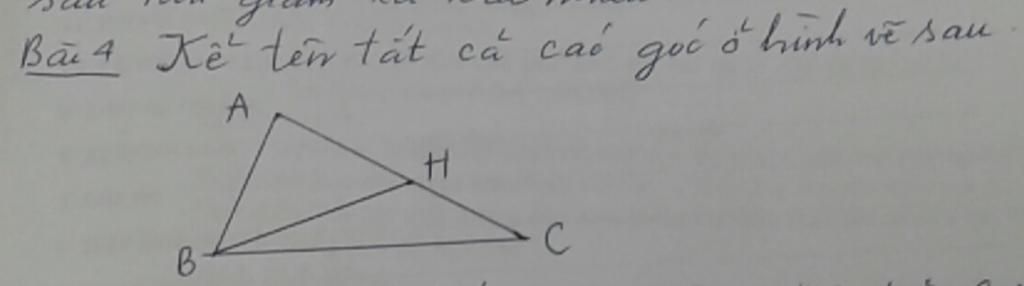 Bài 4 Kể tên tất cả các góc ở hình vẽ sau.
A
H
B
C